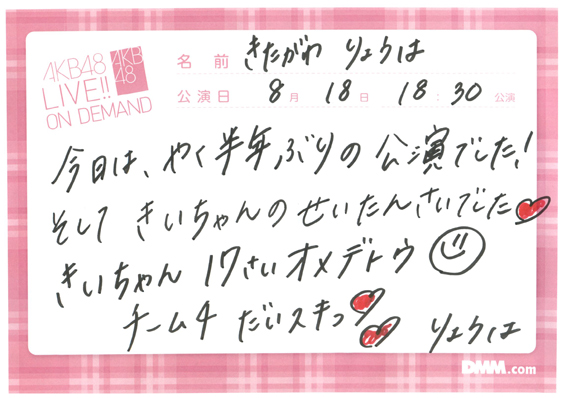 AKB48
LIVE!!
ON DEMAND
AKB
48
名 前 きたがわ りょうは
公演日 8月 18日 18:30 公演
今日は、やく半年ぶりの公演でした!
そして きいちゃんのせいたんさいでした
きいちゃん 17さいオメデトウ
チーム4 だいスキっ
りょうは
DMM.com